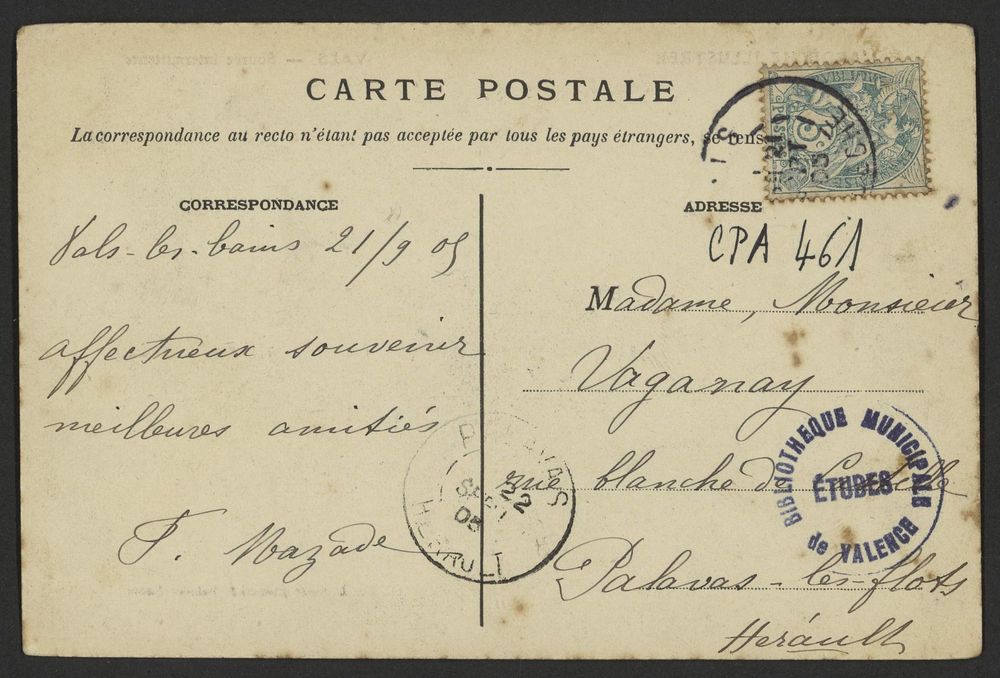 CARTE POSTALE
La correspondance au recto n'étant pas acceptée par tous les pays étrangers, se rens
CORRESPONDANCE
Vals-les-bains 21/9 05
affectueux souvenir
meilleures amitiés
F. Mazade
PALAVAS
22
SEPT
05
HERAULT
ADRESSE
CPA 461
Madame, Monsieur
Vaganay
rue blanche de Castille
Palavas-les-flots
Hérault
BIBLIOTHEQUE MUNICIPALE
ÉTUDES
de VALENCE